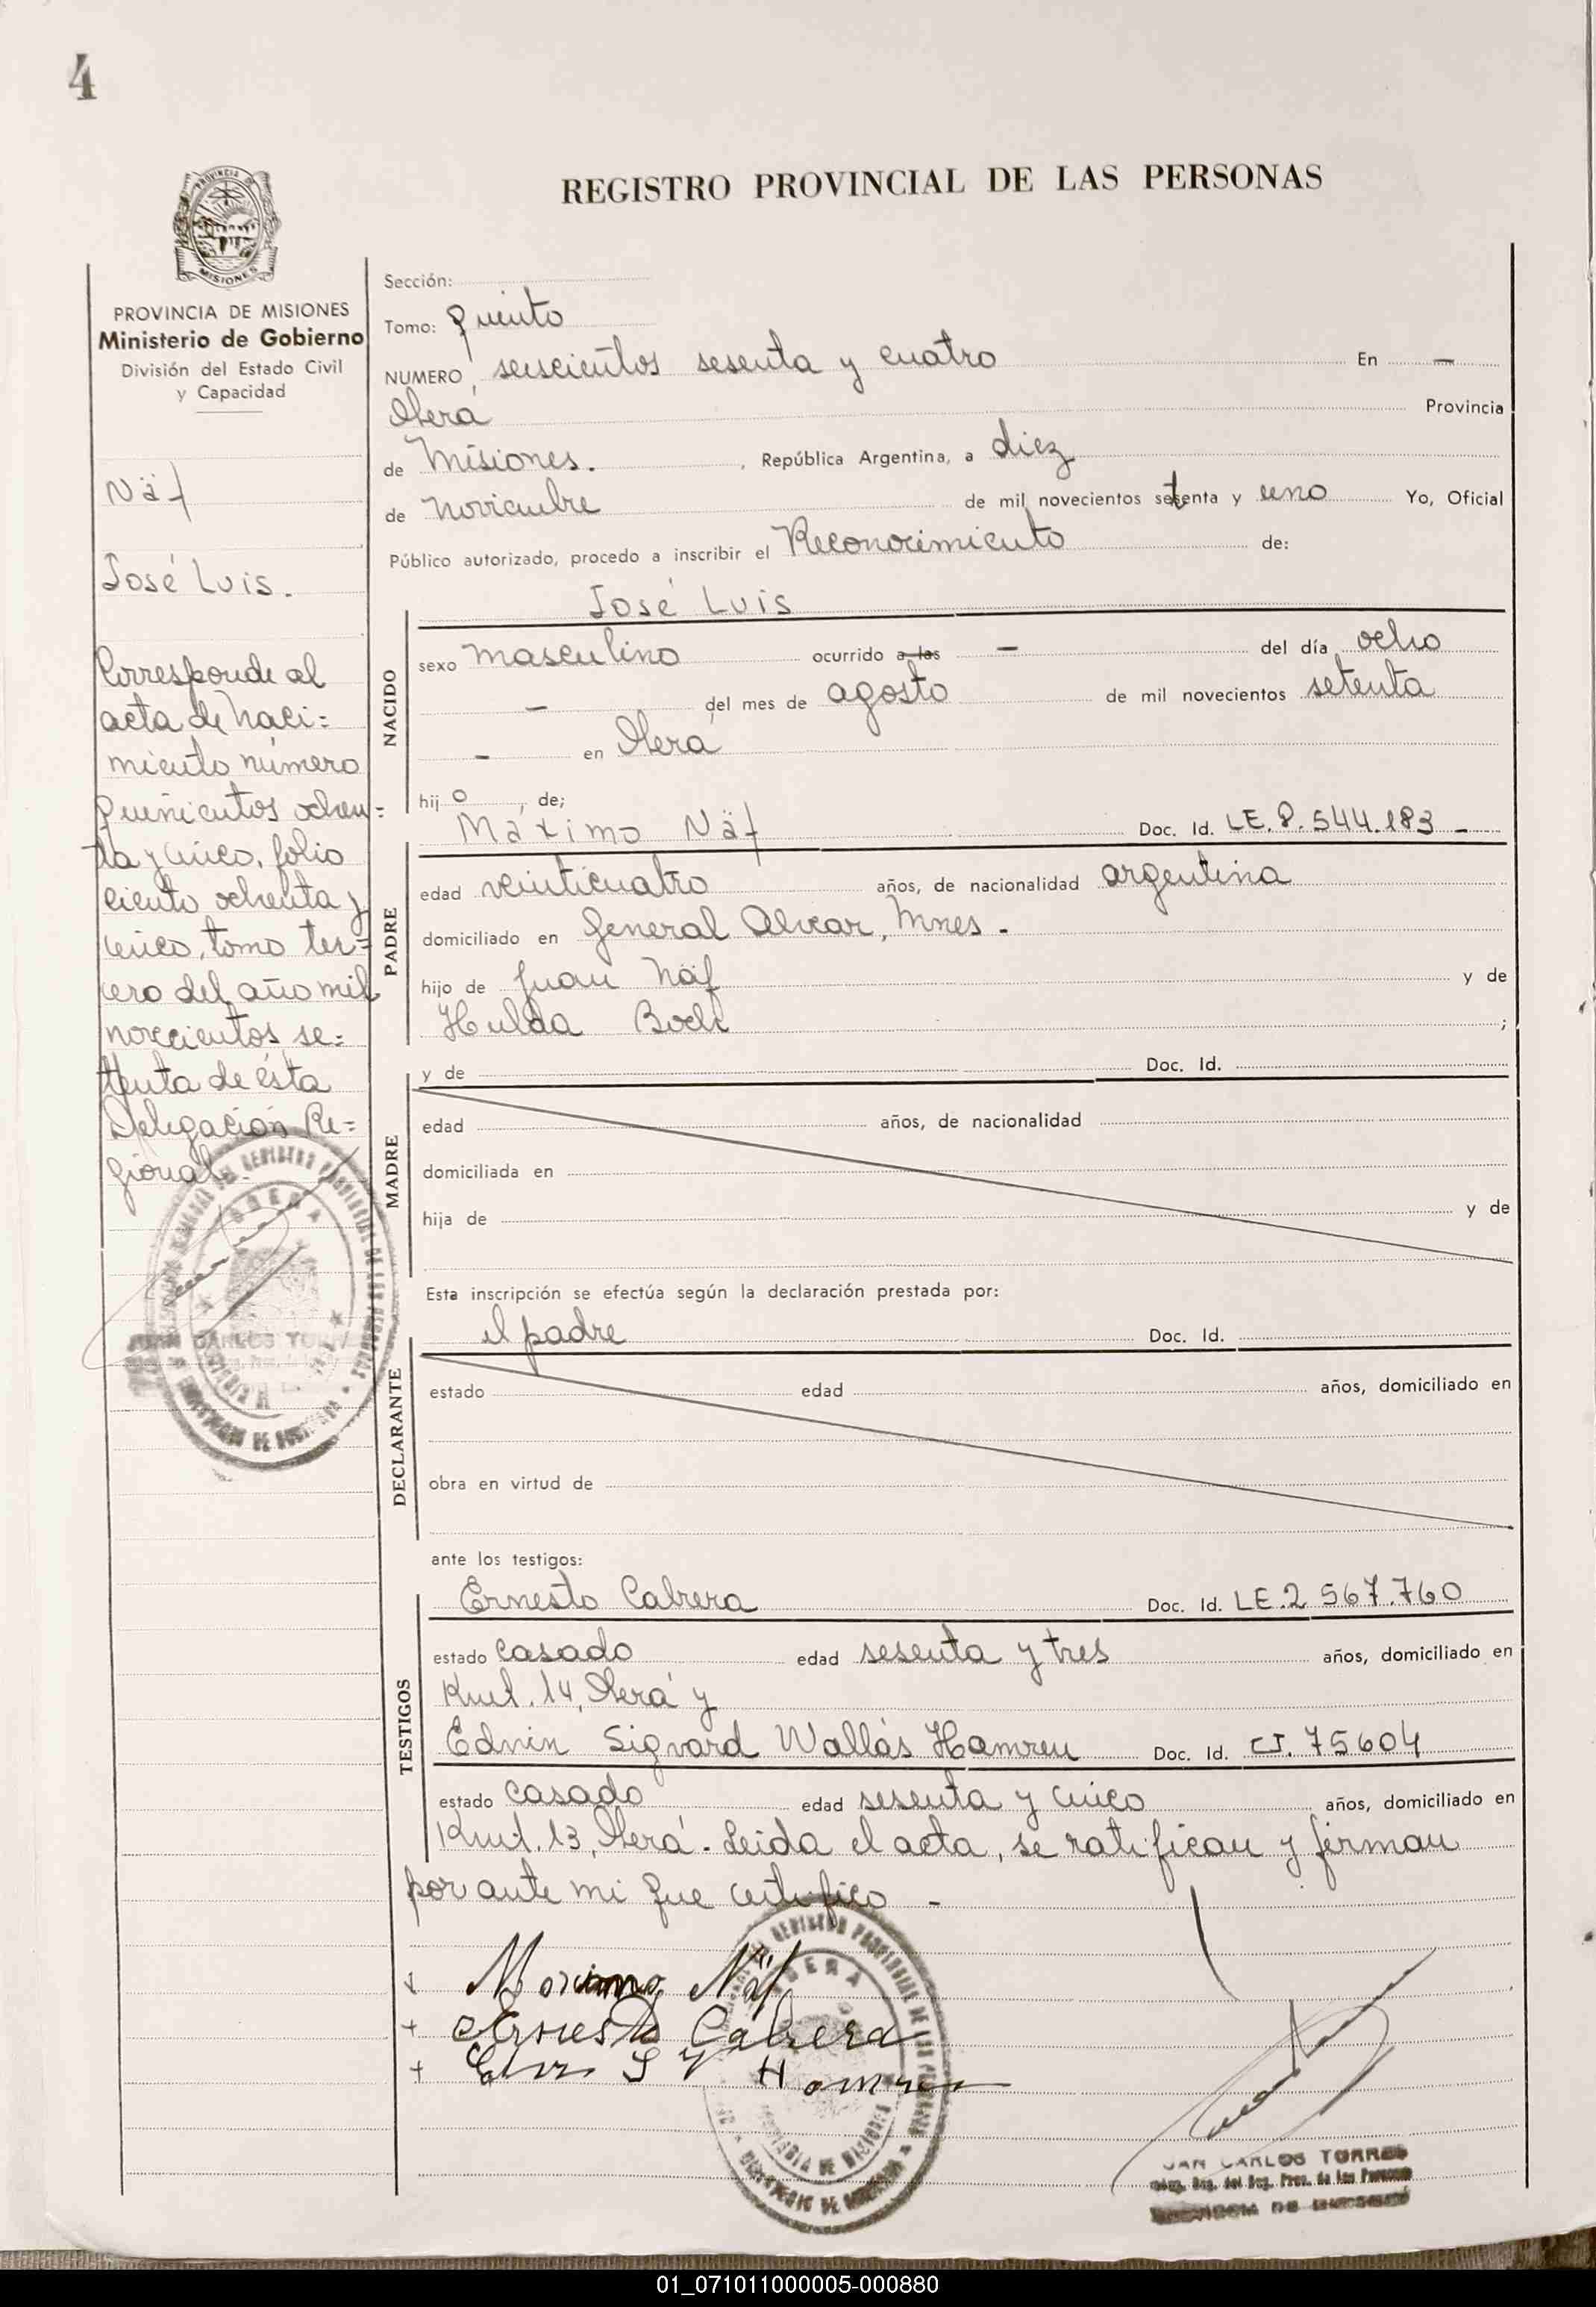 4
PROVINCIA DE
MISIONES
REGISTRO PROVINCIAL DE LAS PERSONAS
PROVINCIA DE MISIONES
Ministerio de Gobierno
División del Estado Civil
y Capacidad
Näf
José Luis.
Corresponde al
acta de naci=
miento número
quinientos ochen=
ta y cinco, folio
ciento ochenta y
cinco, tomo ter=
cero del año mil
novecientos se=
tenta de ésta
Delegación Re=
gional.
Sección:
Tomo: quinto
NUMERO, seiscientos sesenta y cuatro En —
Oberá Provincia
de Misiones. , República Argentina, a diez
de noviembre de mil novecientos setenta y uno Yo, Oficial
Público autorizado, procedo a inscribir el Reconocimiento de:
José Luis
NACIDO
sexo masculino ocurrido a las — del día ocho
— del mes de agosto de mil novecientos setenta
— en Oberá
hij o , de;
Máximo Näf Doc. Id. LE.8.544.183 —
PADRE
edad veinticuatro años, de nacionalidad argentina
domiciliado en General Alvear, Mnes.
hijo de Juan Näf y de
Hulda ;
MADRE
y de Doc. Id.
edad años, de nacionalidad
domiciliada en
hija de y de
Esta inscripción se efectúa según la declaración prestada por:
DECLARANTE
el padre Doc. Id.
estado edad años, domiciliado en
obra en virtud de
ante los testigos:
TESTIGOS
Ernesto Cabrera Doc. Id. LE.2 567.760
estado casado edad sesenta y tres años, domiciliado en
14, Oberá y
Edvin Sigvard Wallás Hamren Doc. Id. CI. 75604
estado casado edad sesenta y cinco años, domiciliado en
13, Oberá. Leida el acta, se ratifican y firman
por ante mi que certifico —
Maximo Näf
+ Ernesto Cabrera
+ Hamren
OBERA
JUAN CARLOS TORRES
Deleg. Reg. del Reg. Prov. de las Personas
01_071011000005-000880